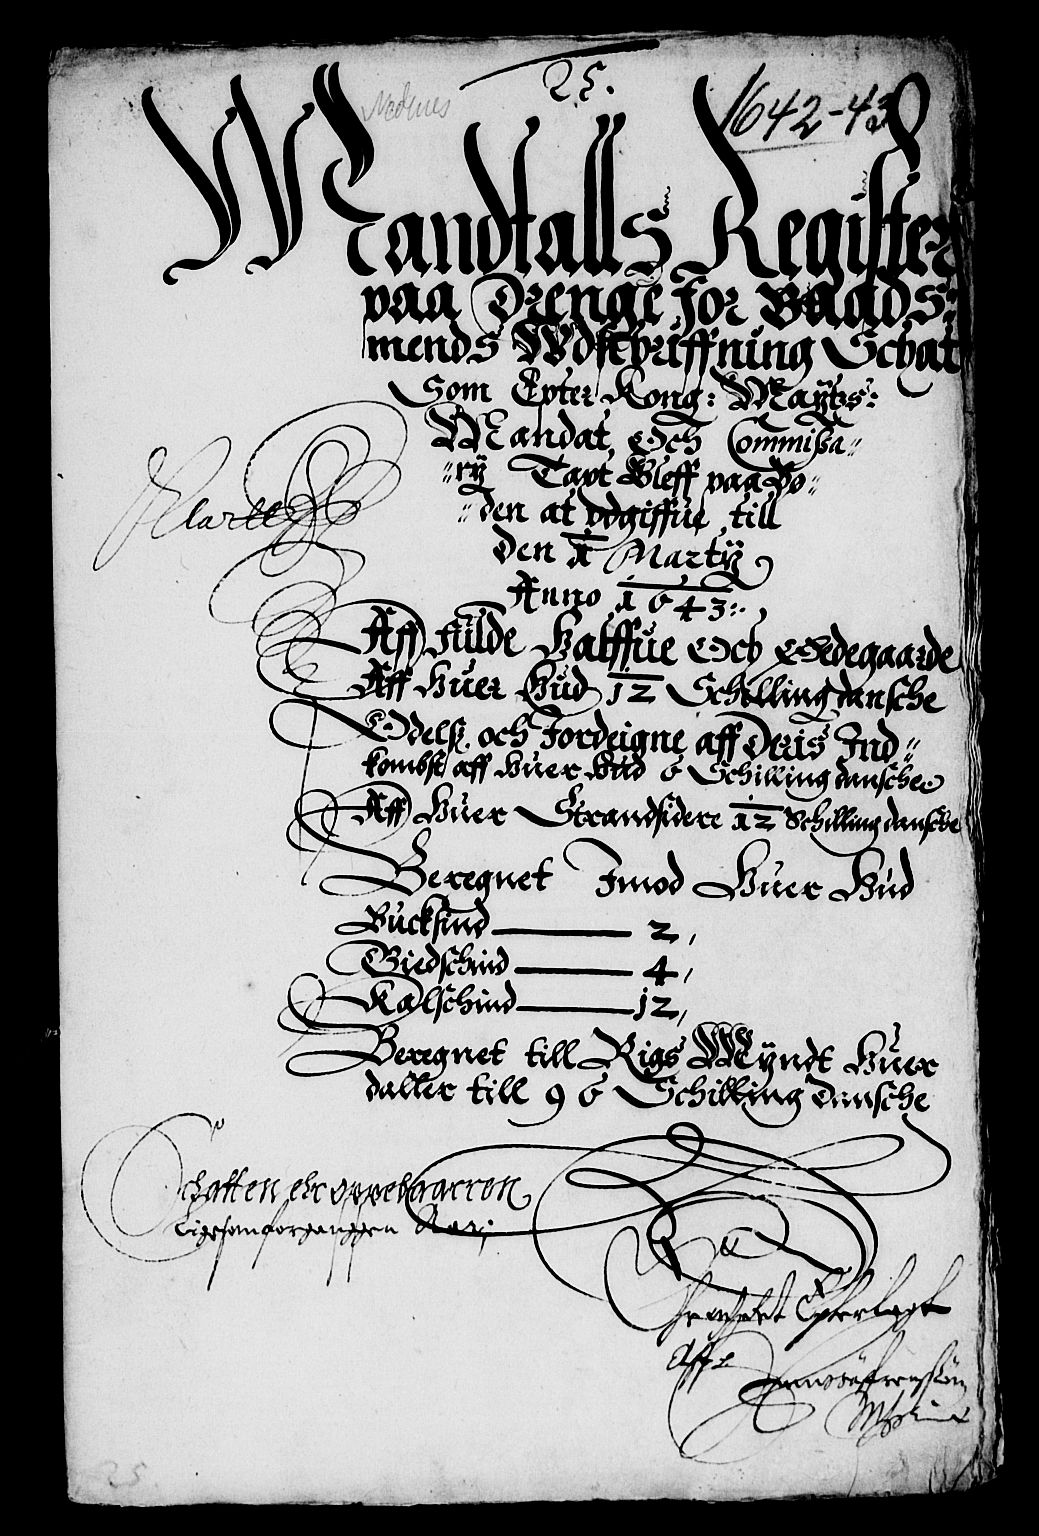 25.
Nedenes
1642-43
Mandtalls Register
paa Drenge for Baads:
mends Wdschriffning Schat
Som Epter Kong: Maÿtz:
Mandat, Och Commißa„
„rÿ Tapt Bleff paa Bo„
„den at vdgiffue till
den 1 Martÿ
Anno 1643:
Aff Fulde Halffue Och Ødegaarde
Aff huer Hud 12 Schilling dansche
Odelß och Fordeigne aff Deris Ind„
kombst aff huer Hud 6 Schilling dansche
Aff Huer Strandsidere 12 Schilling dansche
Beregnet Imod Huer Hud
Buckschind 2,
Giedschind 4,
Kalschind 12,
Beregnet till Rigs Mÿndt Huer
daller till 96 Schilling Dansche
Schatten
25